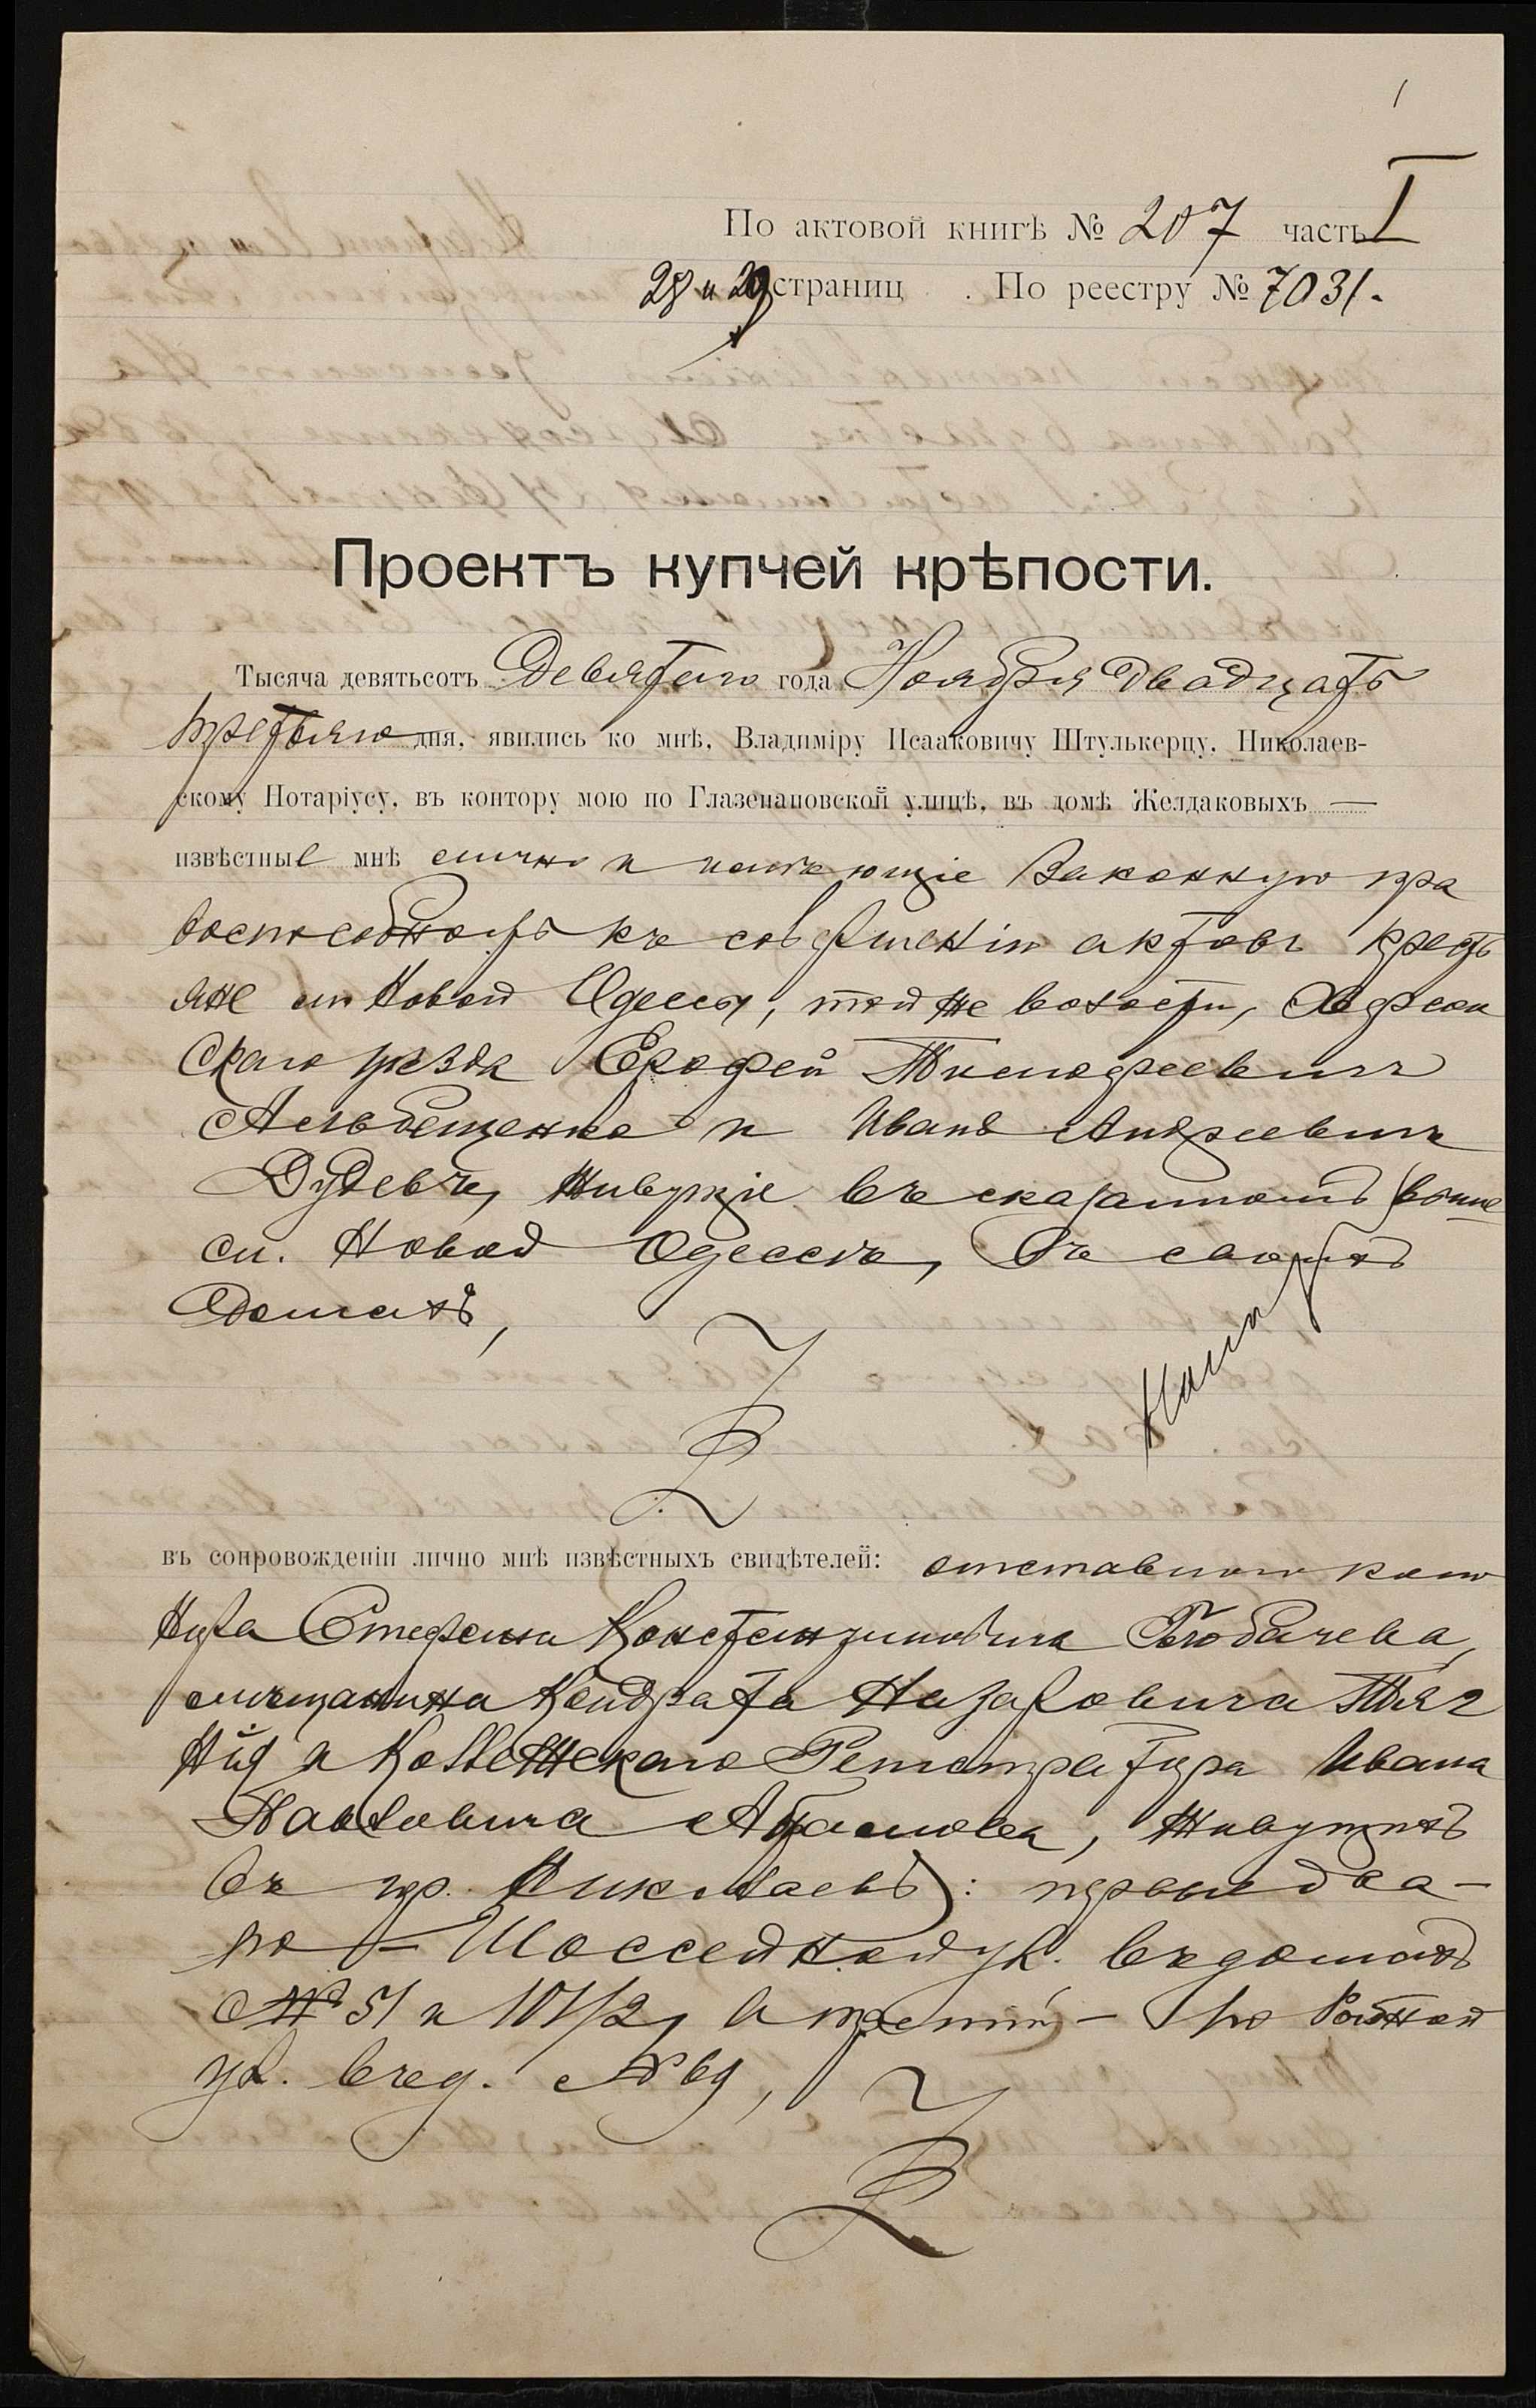 По актовой книгѣ № 207 часть I
28 и 29 страниц . По реестру № 7031.
Проектъ купчей крѣпости.
Тысяча девятьсотъ Девятаго года Ноября двадцать
третьяго дня, явились ко мнѣ, Владиміру Исааковичу Штулькерцу, Николаев-
скому Нотаріусу, въ контору мою по Глазенаповской улицѣ, въ домѣ Желдаковыхъ —
извѣстные мнѣ лично и имѣющіе законную пра
воспособность къ совершенію актовъ крестъ
яне м. Новой Одессы, той же волости, Херсон
скаго уѣзда Ерофей Тимофеевичъ
и Иванъ Андреевичъ
живущіе въ сказанномъ выше
м. Новой Одессѣ, въ своихъ
домахъ,
въ сопровожденіи лично мнѣ извѣстныхъ свидѣтелей: отставного
Стефана Константиновича
мѣщанина Кондрата Назаровича Тяг
ній и Коллежскаго Регистратора Ивана
Павловича Абрамова, живущихъ
въ гор. Николаевѣ: первые два —
по — Шоссейной ул. въ домахъ
№ 51 и 101/2, а третій — по
ул. въ д. № 69,